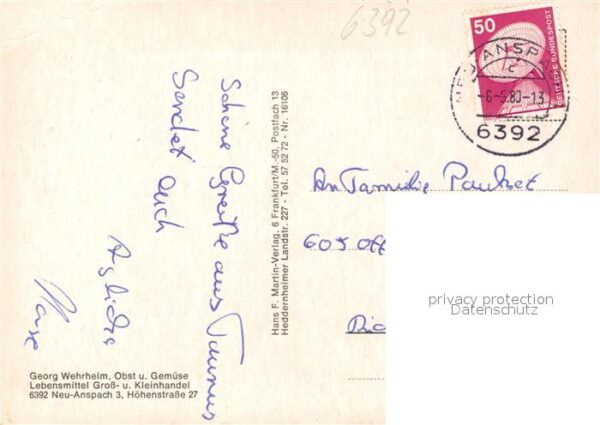 6392
50
DEUTSCHE BUNDESPOST
NEU-ANSP
-6-5.80-13
6392
Schöne Grüße aus Taunus
Sendet Euch
Hans F. Martin-Verlag, 6 Frankfurt/M.-50, Postfach 13
Heddernheimer Landstr. 227 - Tel. 57 52 72 - Nr. 16106
An Familie
605 Off
privacy protection
Datenschutz
Georg Wehrheim, Obst u. Gemüse
Lebensmittel Groß- u. Kleinhandel
6392 Neu-Anspach 3, Höhenstraße 27